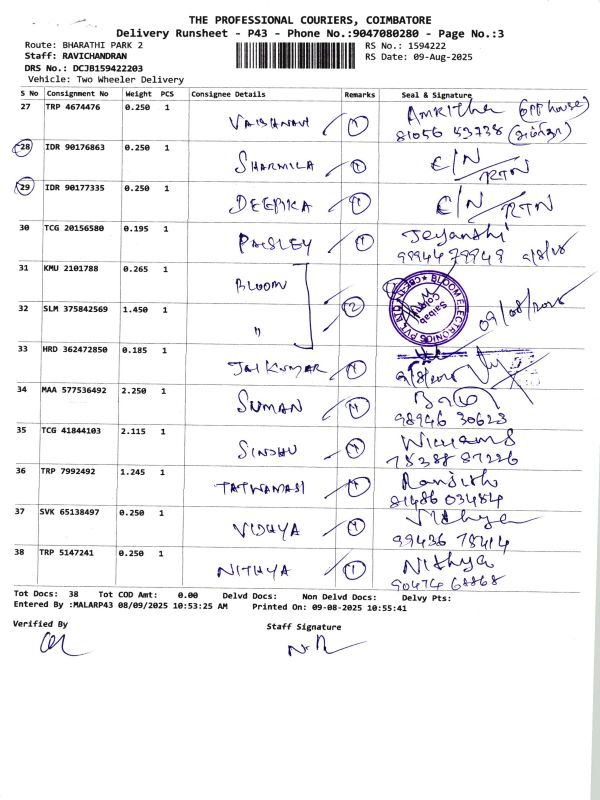 THE PROFESSIONAL COURIERS, COIMBATORE
Delivery Runsheet - P43 - Phone No.:9047080280 - Page No.:3
Route: BHARATHI PARK 2 RS No.: 1594222
Staff: RAVICHANDRAN RS Date: 09-Aug-2025
DRS No.: DCJB159422203
Vehicle: Two Wheeler Delivery
S No Consignment No Weight PCS Consignee Details Remarks Seal & Signature
27 TRP 4674476 0.250 1 VAISHNAVI 1 AMRITHA (OPP house)
81056 53738 (அம்ரிதா)
28 IDR 90176863 0.250 1 SHARMILA 1 C/N RTN
29 IDR 90177335 0.250 1 DEEPIKA 1 C/N RTN
30 TCG 20156580 0.195 1 PAISLEY 1 Jeyanthi
99944 79949 9/8/25
31 KMU 2101788 0.265 1 BLOOM
32 SLM 375842569 1.450 1 " 2 BLOOM ELECTRONICS PVT LTD 09/08/2025
33 HRD 362472850 0.185 1 JAI KUMAR 1 9/8/2025
34 MAA 577536492 2.250 1 SUMAN 1
98946 30623
35 TCG 41844103 2.115 1 SINDHU 1 Williams
78388 87226
36 TRP 7992492 1.245 1 TATWAMASI 1 Ranjith
81486 03484
37 SVK 65138497 0.250 1 VIDHYA 1 Vidhya
99436 78414
38 TRP 5147241 0.250 1 NITHYA 1 Nithya
90474 68868
Tot Docs: 38 Tot COD Amt: 0.00 Delvd Docs: Non Delvd Docs: Delvy Pts:
Entered By :MALARP43 08/09/2025 10:53:25 AM Printed On: 09-08-2025 10:55:41
Verified By Staff Signature